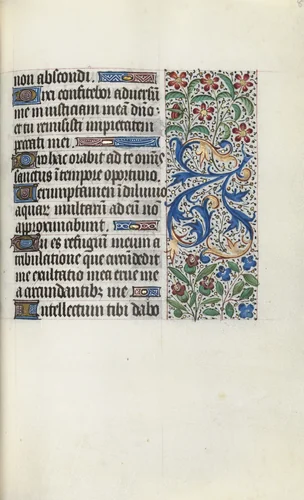 non abscondi.
Dixi confitebor adversũ
me iniusticiam meã dño:
et tu remisisti impietatem
peccati mei.
Pro hac orabit ad te omĩs
sanctus ĩ tempore oportuno.
Verumptamen ĩ diluvio
aquar multarũ ad eũ nõ
approximabunt.
Tu es refugiũ meum a
tribulatione que circũdedit
me exultatio mea erue me
a circũdantibꝫ me
Intellectum tibi dabo